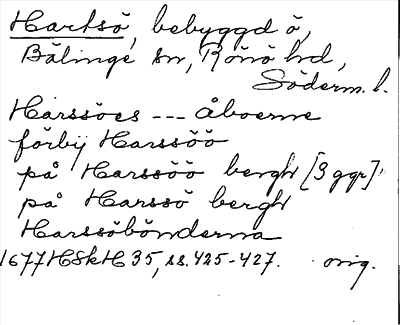 Hartsö, bebyggd ö,
Bälinge sn, Rönö hd,
Söderm. l.
Harssöes --- Åboerne
förbij Harssöö
på Harssöö bergh [3 ggr]
på Harssö bergh
Harssöbönderna
1677 HSkH 35, ss. 425-427. orig.